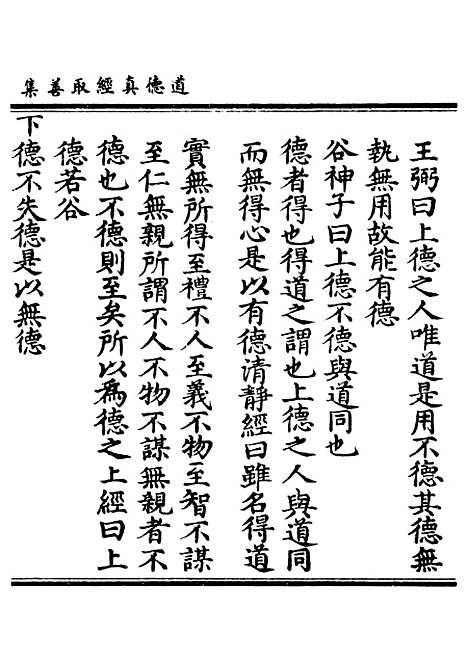 道德真經取善集
王弼曰上德之人唯道是用不德其德無
執無用故能有德
谷神子曰上德不德與道同也
德者得也得道之謂也上德之人與道同
而無得心是以有德清靜經曰雖名得道
實無所得至禮不人至義不物至智不謀
至仁無親所謂不人不物不謀無親者不
德也不德則至矣所以爲德之上經曰上
德若谷
下德不失德是以無德